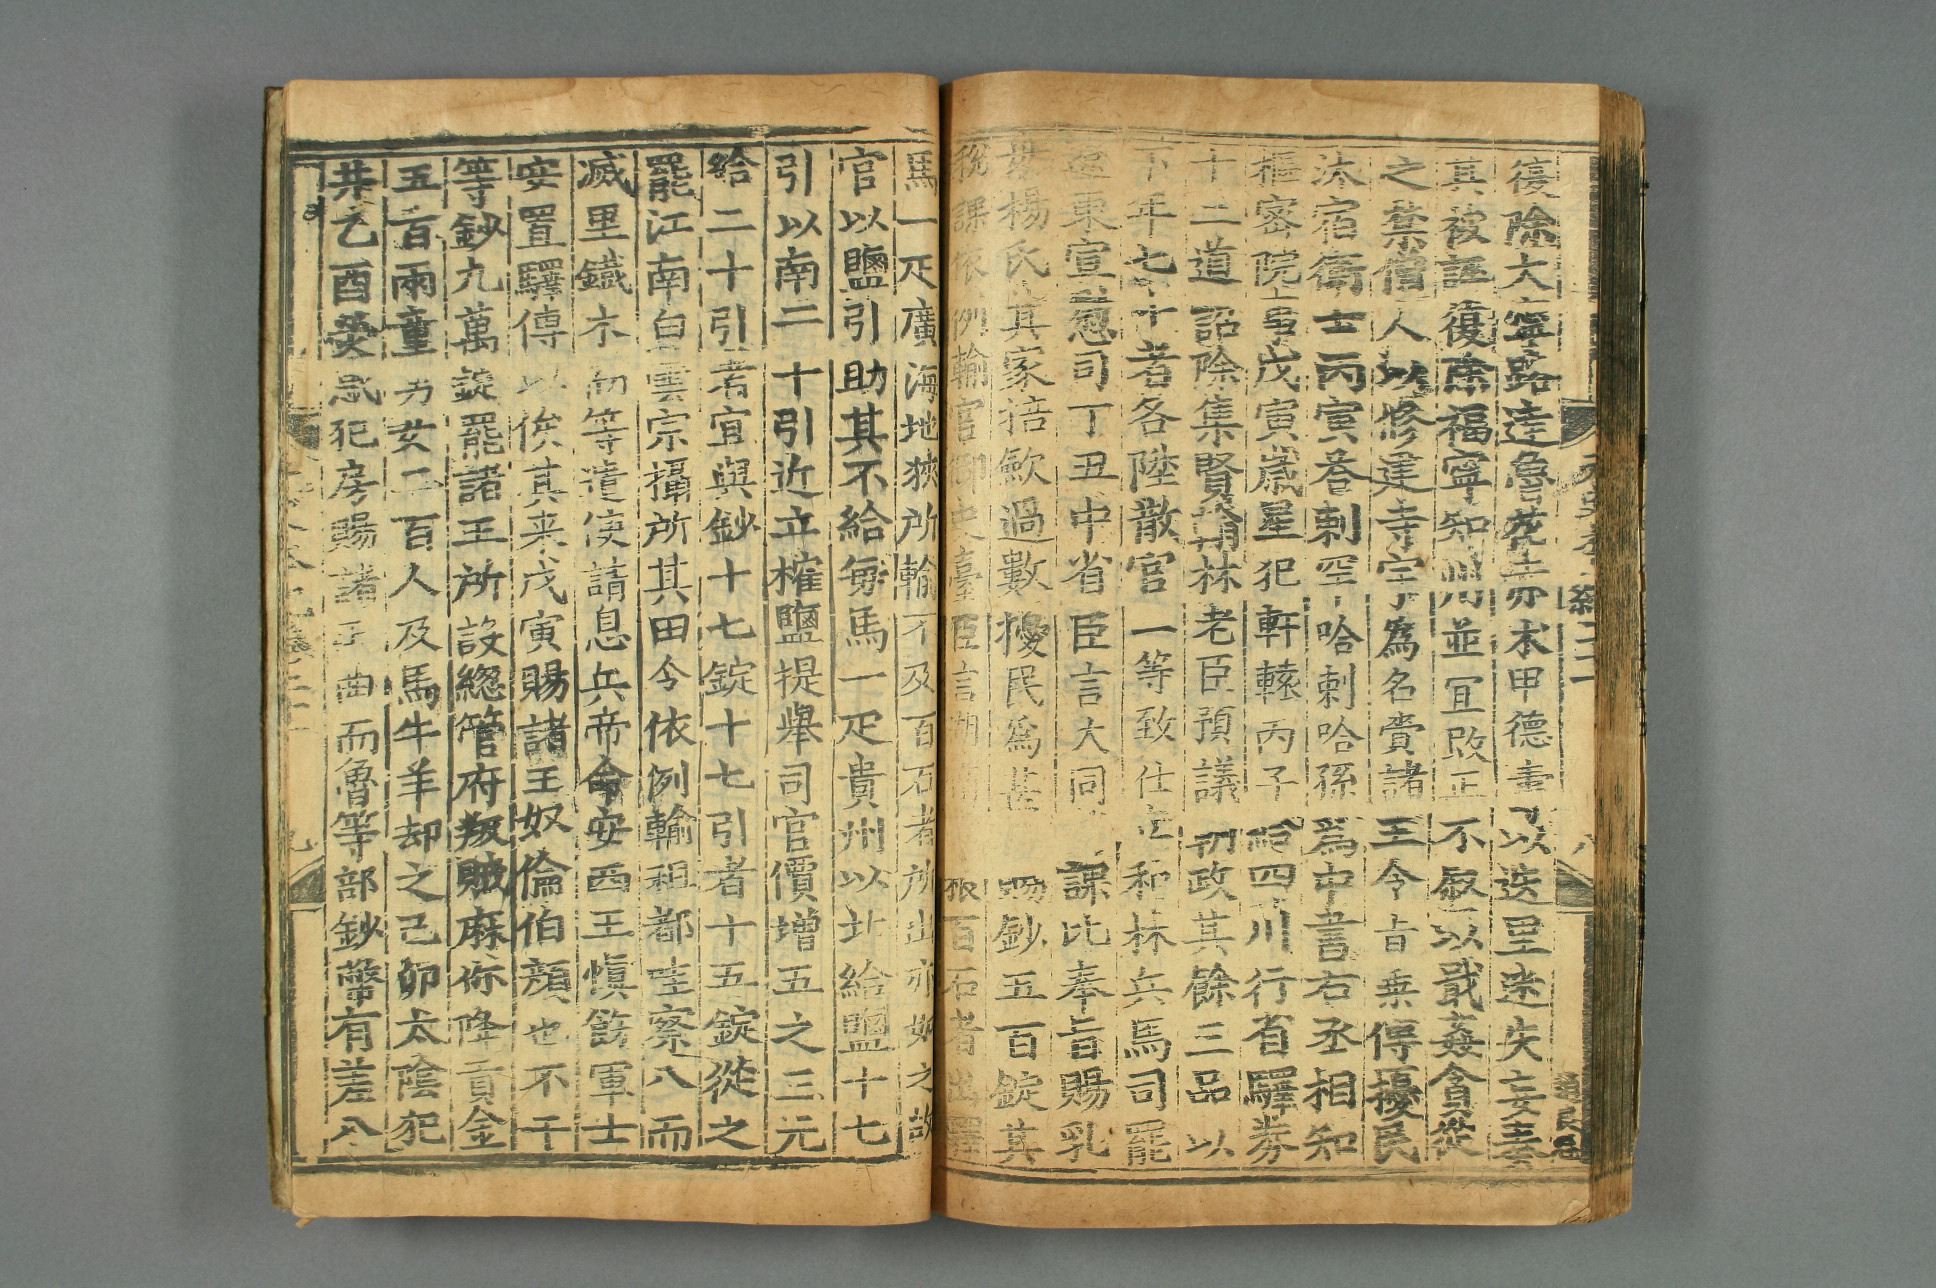 復除大寧路達魯花赤木甲德壽以迭里迷失妄奏
其被誣復除福寧知州並宜改正不敘以戢姦貪從
之禁僧人以修建寺宇爲名賫諸王令旨乗傳擾民
汰宿衞士丙寅荅剌罕哈剌哈孫爲中書右丞相知
樞密院事戊寅歲星犯軒轅丙子給四川行省驛劵
十二道詔除集賢翰林老臣預議朝政其餘三品以
下年七十者各陞散官一等致仕立和林兵馬司罷
遼東宣慰司丁丑中書省臣言大同課比奉旨賜乳
母楊氏其家掊歛過數擾民爲甚賜鈔五百錠其
稅課依例輸官御史臺臣言湖百石者出驛
馬一疋廣海地狹所輸不及百石者所出亦如之故
官以鹽引助其不給每馬一疋貴州以北給鹽十七
引以南二十引近立榷鹽提舉司官價增五之三元
給二十引者宜與鈔十七錠十七引者十五錠從之
罷江南白雲宗攝所其田令依例輸租都哇察八而
滅里鐵木而等遣使請息兵帝命安西王愼飭軍士
安置驛傳以俟其来戊寅賜諸王奴倫伯顔也不干
等鈔九萬錠罷諸王所設總管府叛賊麻你降貢金
五百兩童男女二百人及馬牛羊却之己卯太陰犯
井乙酉熒惑犯房賜諸王曲而魯等部鈔幣有差八